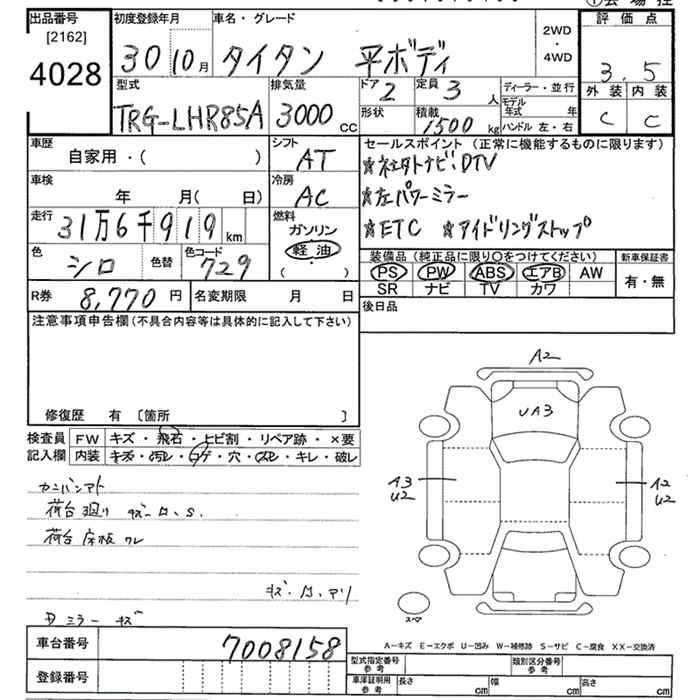 出品番号 初度登録年月 車名・グレード 評価点
[2162] 2WD
・
4WD
4028 30 10月 タイタン 平ボディ 3.5
外装 内装
C C
型式 排気量 ドア 2 定員 3人 ディーラー・並行
TRG-LHR85A 3000cc 形状 積載 1500kg モデル年式 年
ハンドル 左・右
車歴 自家用・( ) シフト AT
セールスポイント (正常に機能するものに限ります)
★社外ナビ・DTV
★左パワーミラー
★ETC ★アイドリングストップ
車検 年 月( 日) 冷房 AC
走行 31万6千919km 燃料 ガソリン
軽油
( )
色 シロ 色替 色コード 729
装備品 (純正品に限り○をつけてください) 新車保証書
PS PW ABS エアB AW 有・無
SR ナビ TV カワ
R券 8,770円 名変期限 月 日
後日品
注意事項申告欄(不具合内容等は具体的に記入して下さい)
修復歴 有 [箇所 ]
検査員 FW キズ・飛石・ヒビ割・リペア跡・×要
記入欄 内装 キズ・汚レ・コゲ・穴・スレ・キレ・破レ
荷台廻り キズ・凹、S、
荷台床板ワレ
キズ・凹、アリ
ミラー キズ
A2
UA3
A3
U2
A2
U2
スペア
A-キズ E-エクボ U-凹み W-補修跡 S-サビ C-腐食 XX-交換済
車台番号 7008158
登録番号
型式指定番号 参考 類別区分番号 参考
車庫証明用 参考 長さ cm 幅 cm 高さ cm